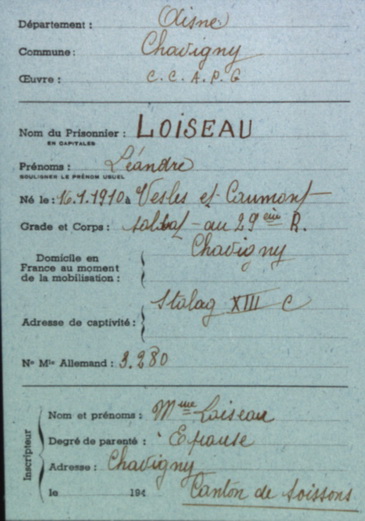 Département : Aisne
Commune : Chavigny
Œuvre : C. C. A. P. G
Nom du Prisonnier : LOISEAU
EN CAPITALES
Prénoms : Léandre
SOULIGNER LE PRÉNOM USUEL
Né le : 16.1.1910 à Vesles et Caumont
Grade et Corps : soldat - au 29 eme R.
Domicile en
France au moment
de la mobilisation : Chavigny
Adresse de captivité : Stalag XIII C
No Mle Allemand : 3.280
Inscripteur
Nom et prénoms : Mme Loiseau
Degré de parenté : Epouse
Adresse : Chavigny
le 194 Canton de Soissons